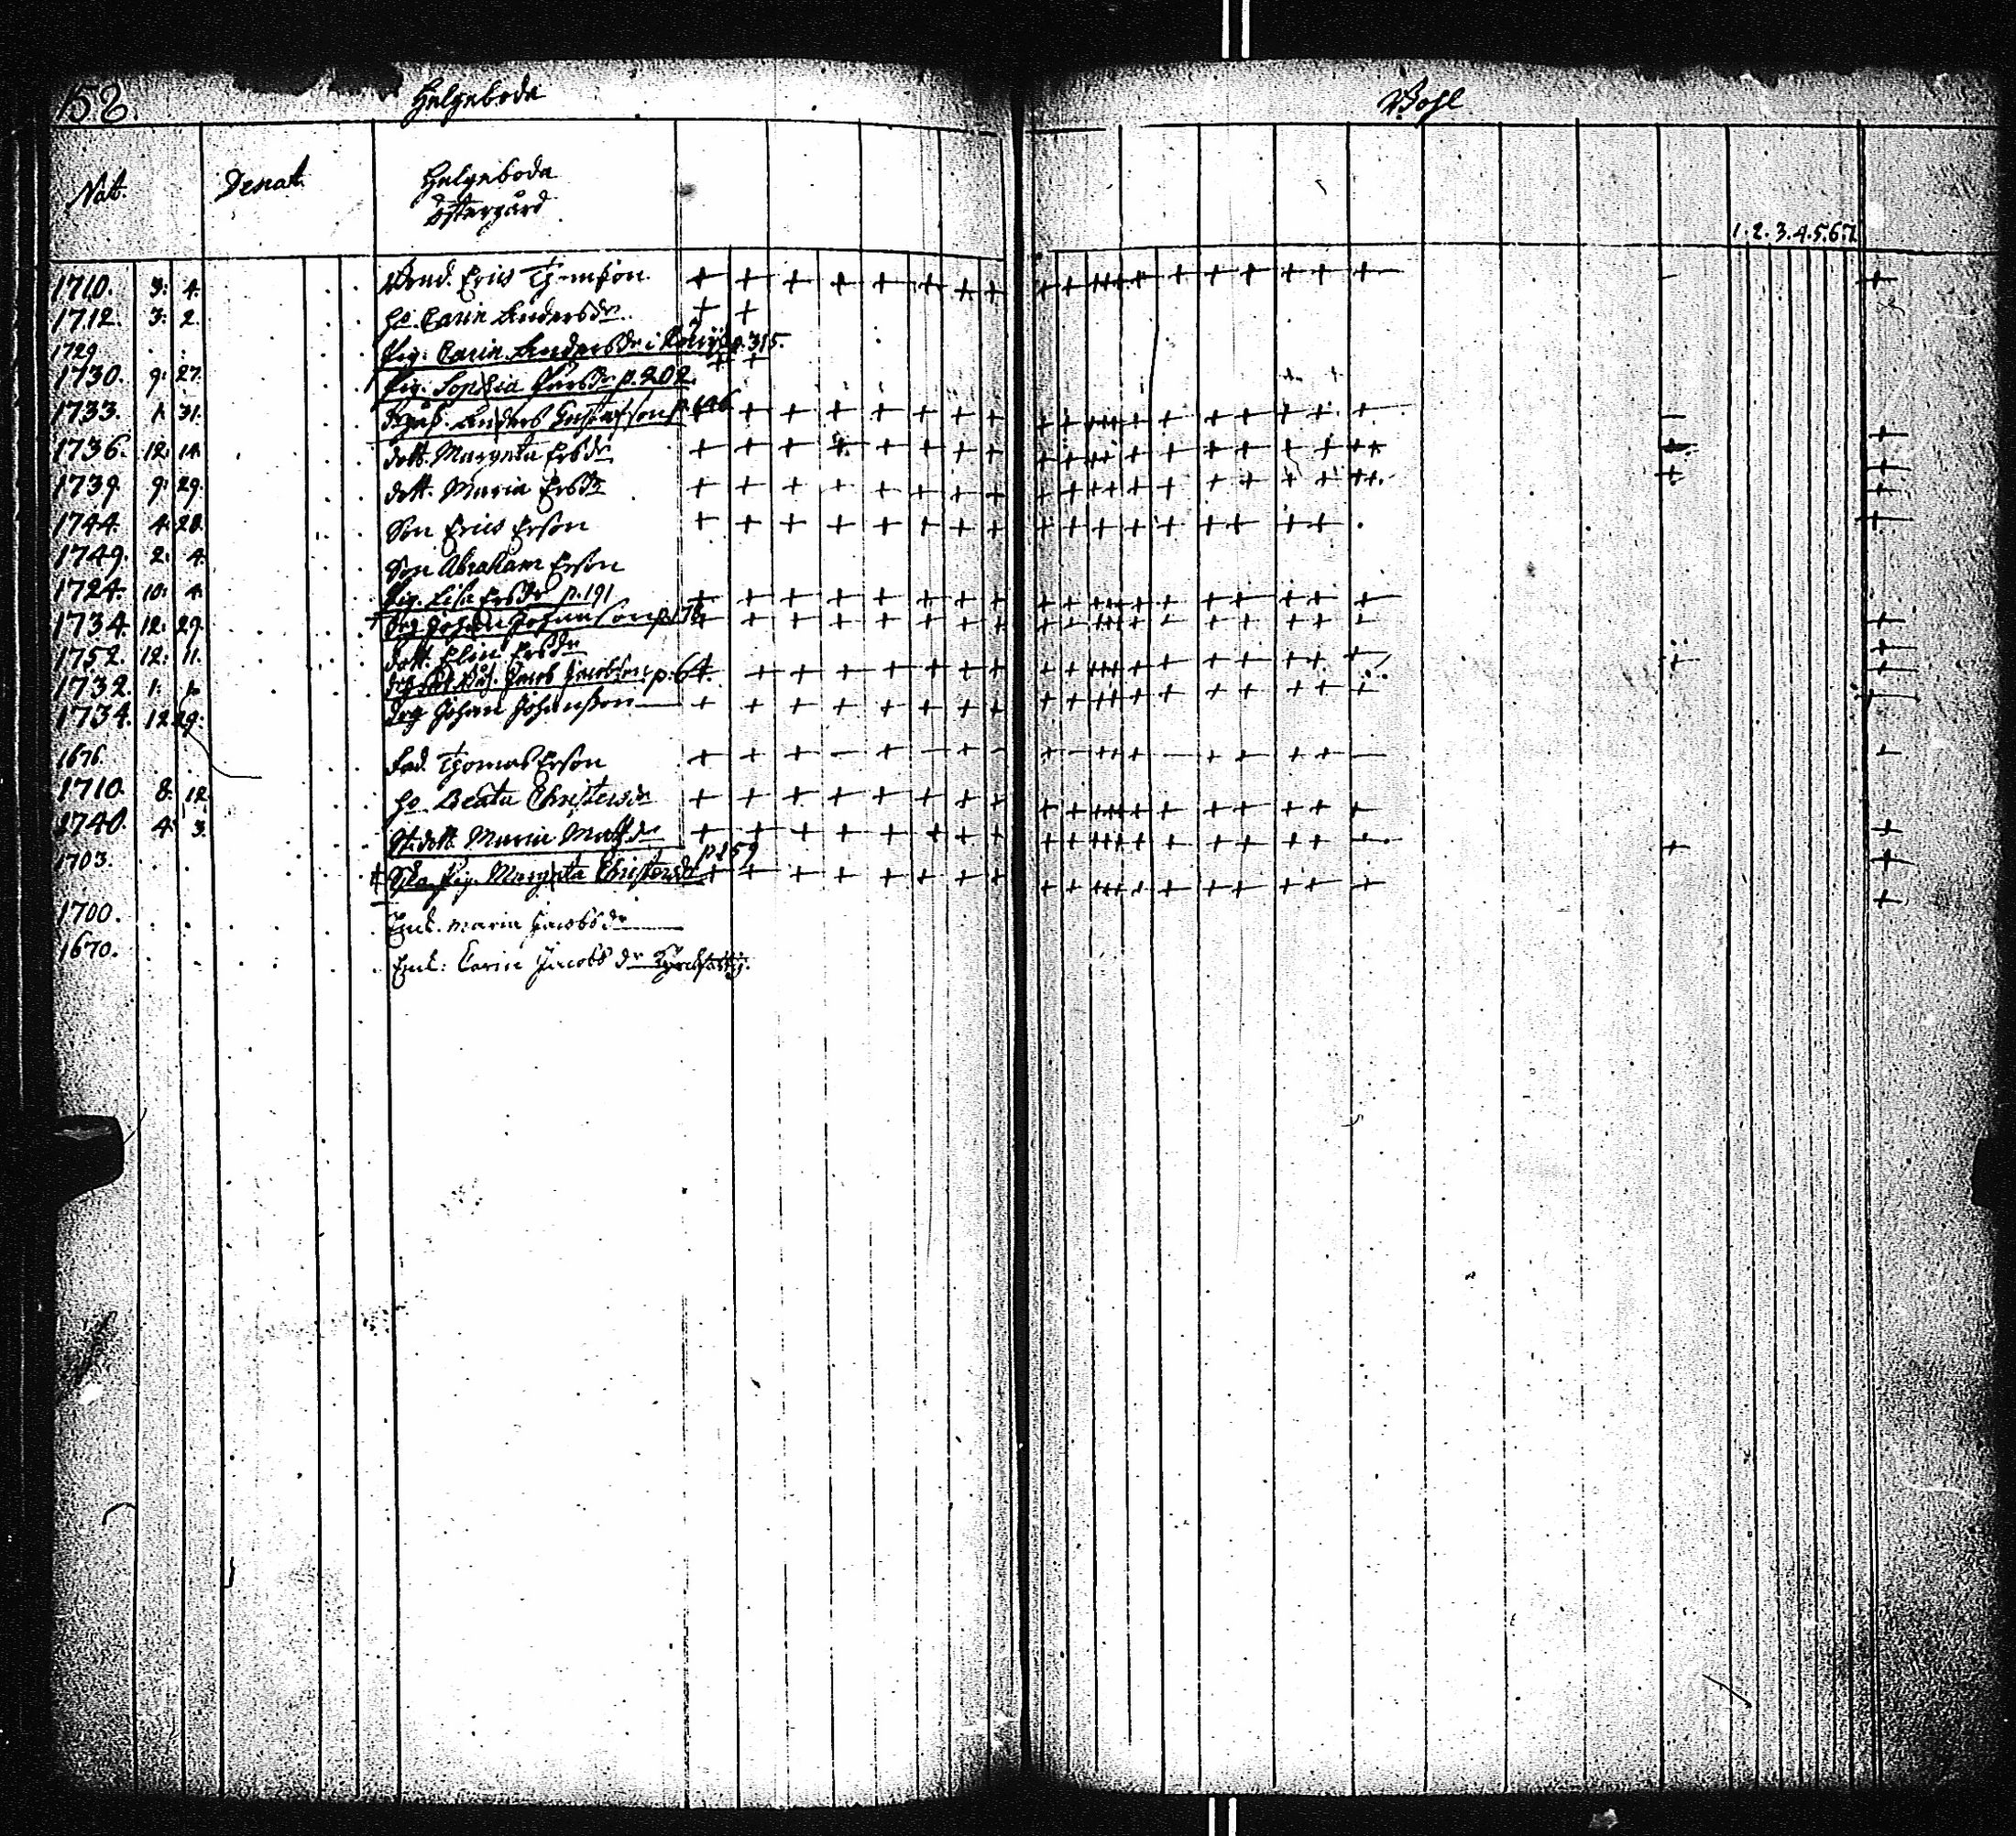 158. Helgeboda Bohl
Nat. Denat. Helgeboda
Östergård
1. 2. 3. 4. 5. 6. 7.
1710. 3: 4. Eric Thomson
1712. 3: 2. ho. Carin Andersdr.
1729. Pig: Carin Andersdr i p. 315.
1730. 9: 27. Pig. Sophia Persdr p. 202.
1733. 1. 31. Anders Gustafson p.
1736. 12: 14. dott. Margeta Ersdr
1739. 9: 29. dott. Maria Ersdr
1744. 4: 28. Son Eric Erson
1749. 2: 4. Son Abraham Erson
1724. 10: 4. Pig. Lisa Ersdr p. 191
1734. 12: 29. Drg Johan Johanson p.
1752. 12: 11. dott. Elin Ersdr
1732. 1: Jacob Jacobson p. 64.
1734. 12 29. Drg Johan Johanson
1676. Fad. Thomas Erson
1710. 8. 12 ho. Beata Christersdr
1740. 4. 3. St. dott. Maria Matsdr
1703. Pig. Margeta Christersdr p 159
1700. Enk. Maria Jacobsdr
1670. Enk: Carin Jacobsdr